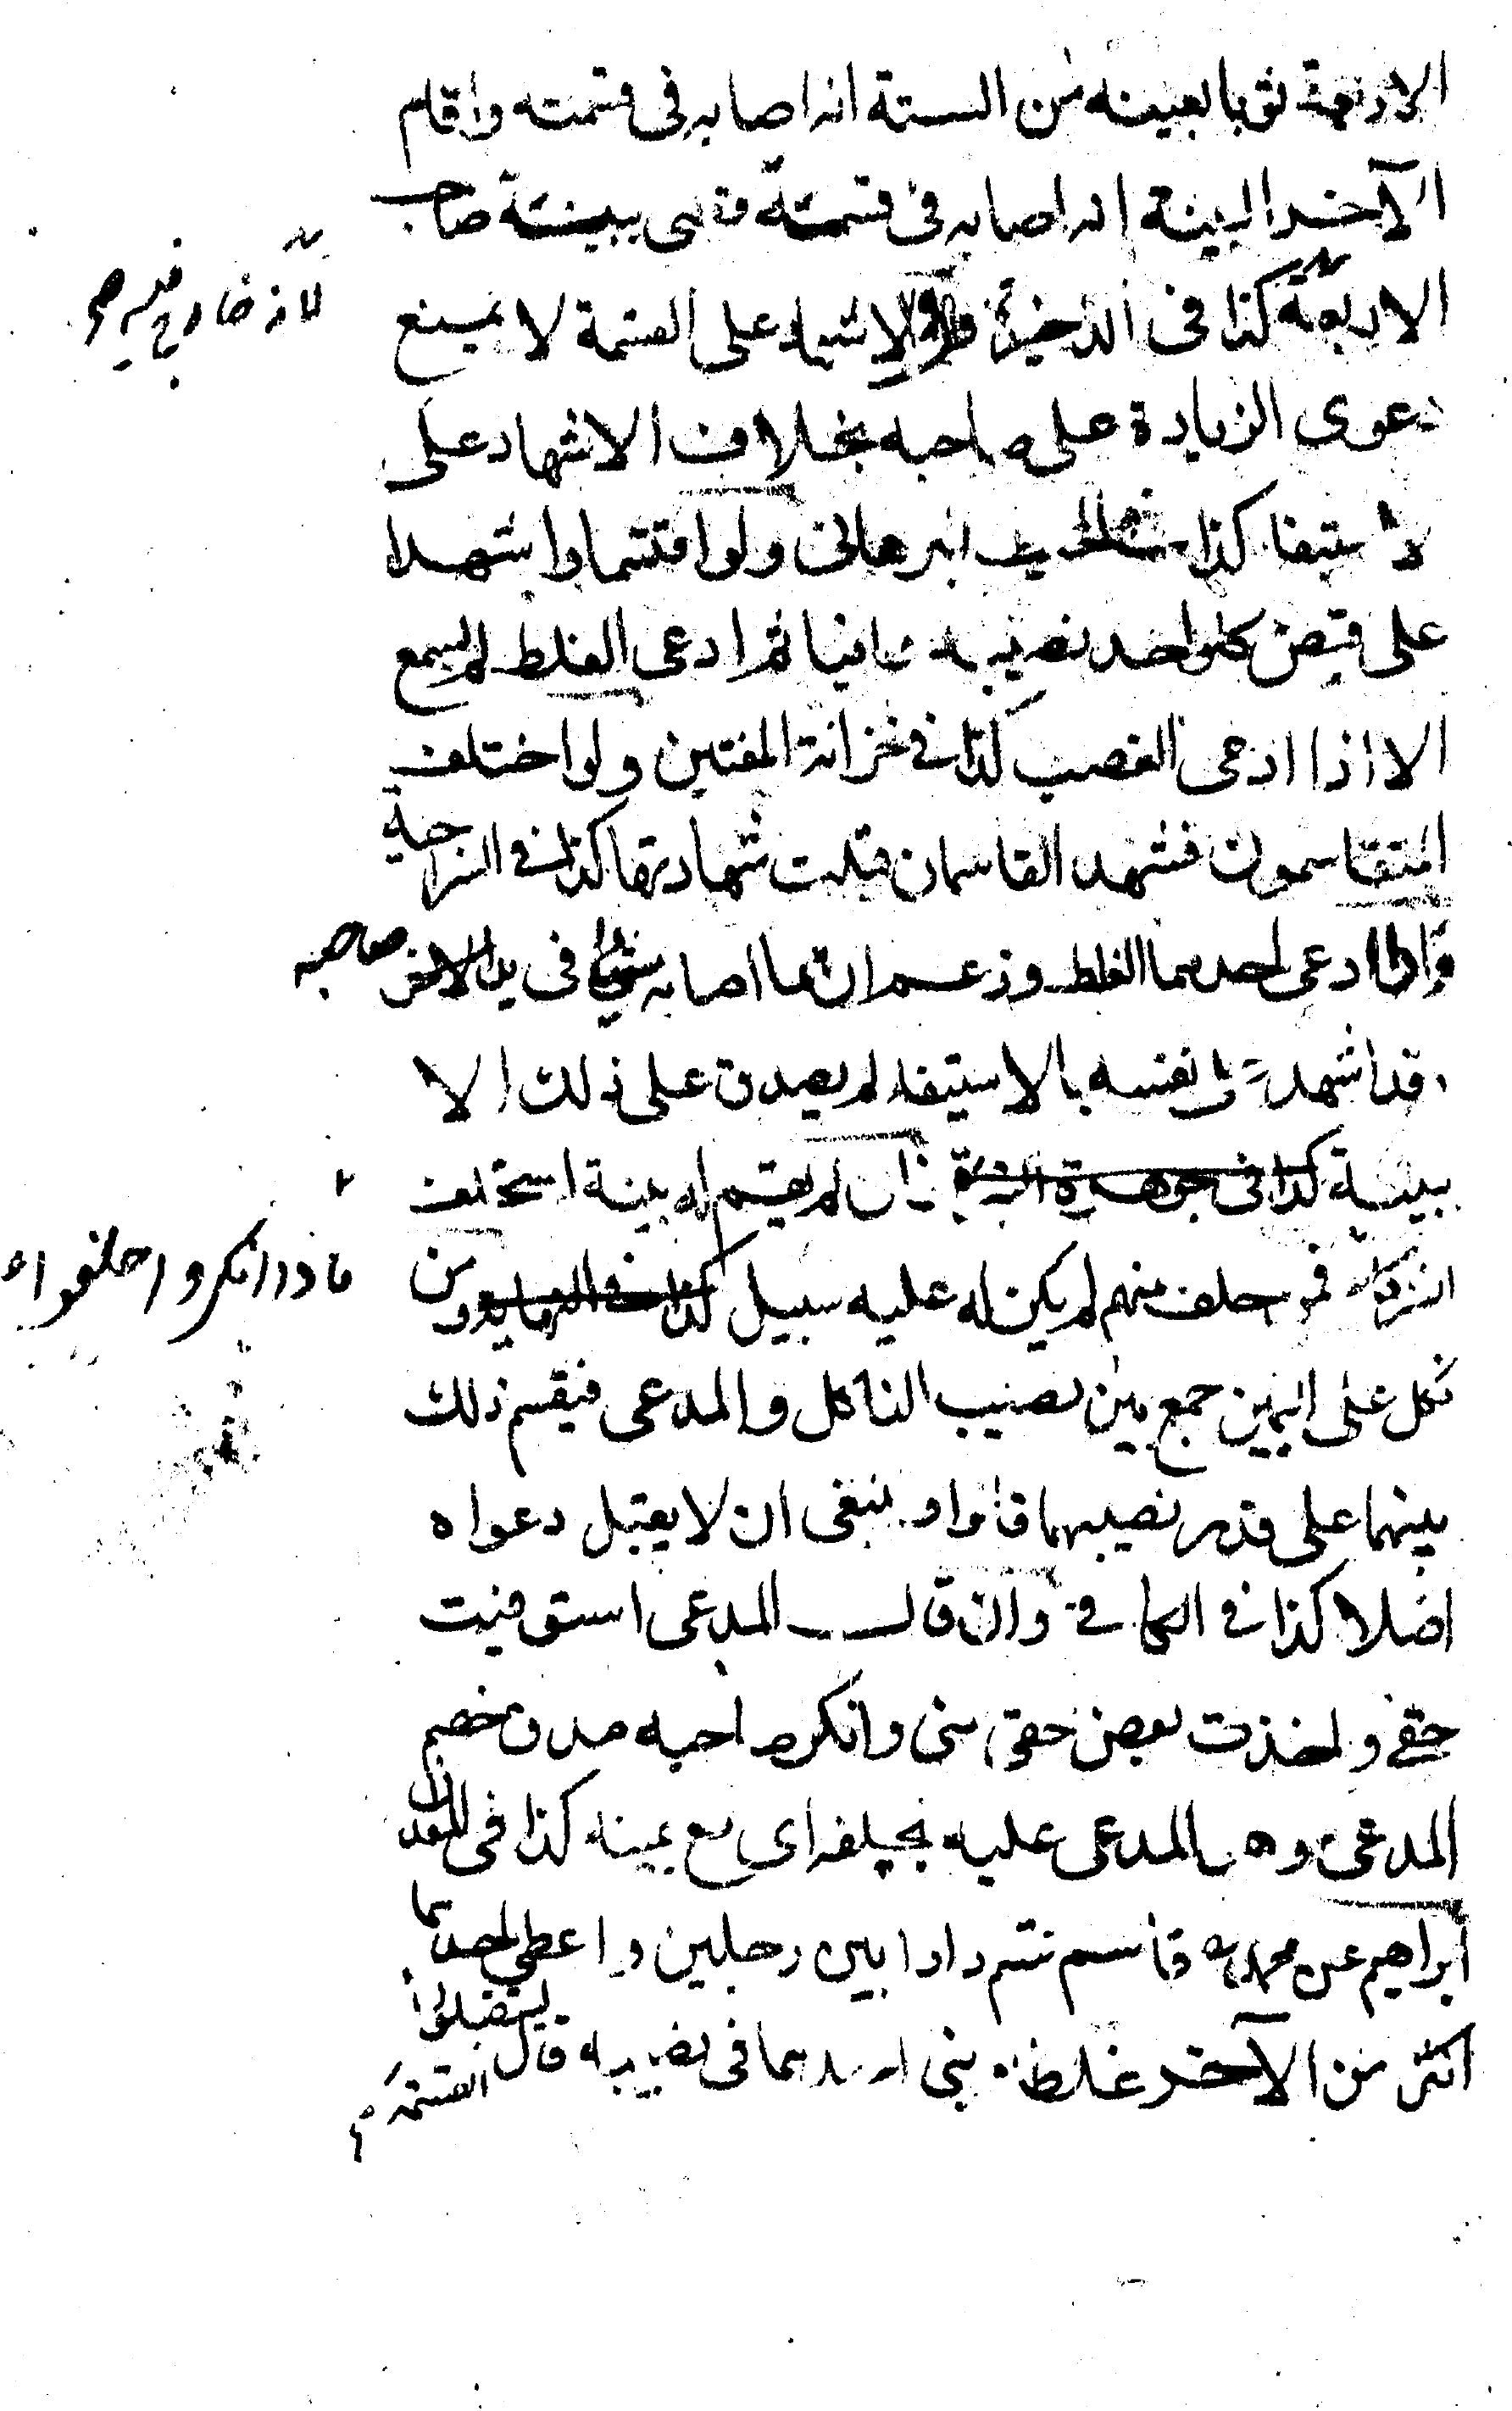 الاربعة ثوبا بعينه من الستة انه اصابه فى قسمته واقام
الآخر البينة انه اصابه فى قسمته قضى ببينة صاحب
الاربعة كذا فى الذخيرة والاشهاد على القسمة لا يمنع
لانه خارج فيه
دعوى الزيادة على صاحبه بخلاف الاشهاد على
الاستيفا كذا المحيط البرهانى ولو اقتسما واشهدا
على قبض كل واحد نصيبه ثانيا ثم ادعى الغلط لم يسمع
الا اذا ادعى الغصب كذا فى خزانة المفتين ولو اختلف
المتقاسمون فشهد القاسمان قبلت شهادتهما كذا فى السراجية
واذا ادعى احدهما الغلط وزعم ان مما اصابه شيئا فى يد الاخر صاحبه
وقد اشهد على نفسه بالاستيفا لم يصدق على ذلك الا
ببينة كذا فى جوهرة النيرة فان لم يقم له بينة استحلف
الشركاء فمن حلف منهم لم يكن له عليه سبيل كذا فى النهاية ومن
فاذا انكروا حلفوا
نكل على اليمين جمع بين نصيب الناكل والمدعى فيقسم ذلك
بينهما على قدر نصيبهما قالوا وينبغى ان لا يقبل دعواه
اصلا كذا فى الكافى وان قال المدعى استوفيت
حقى واخذت بعض حقى منى وانكر صاحبه صدق خصم
المدعى وهو المدعى عليه بحلفه اى مع يمينه كذا فى
ابراهيم عن محمد قاسم قسم دارا بين رجلين واعطى احدهما
اكثر من الآخر غلطا وبنى احدهما فى نصيبه قال يستقبلوا
القسمة